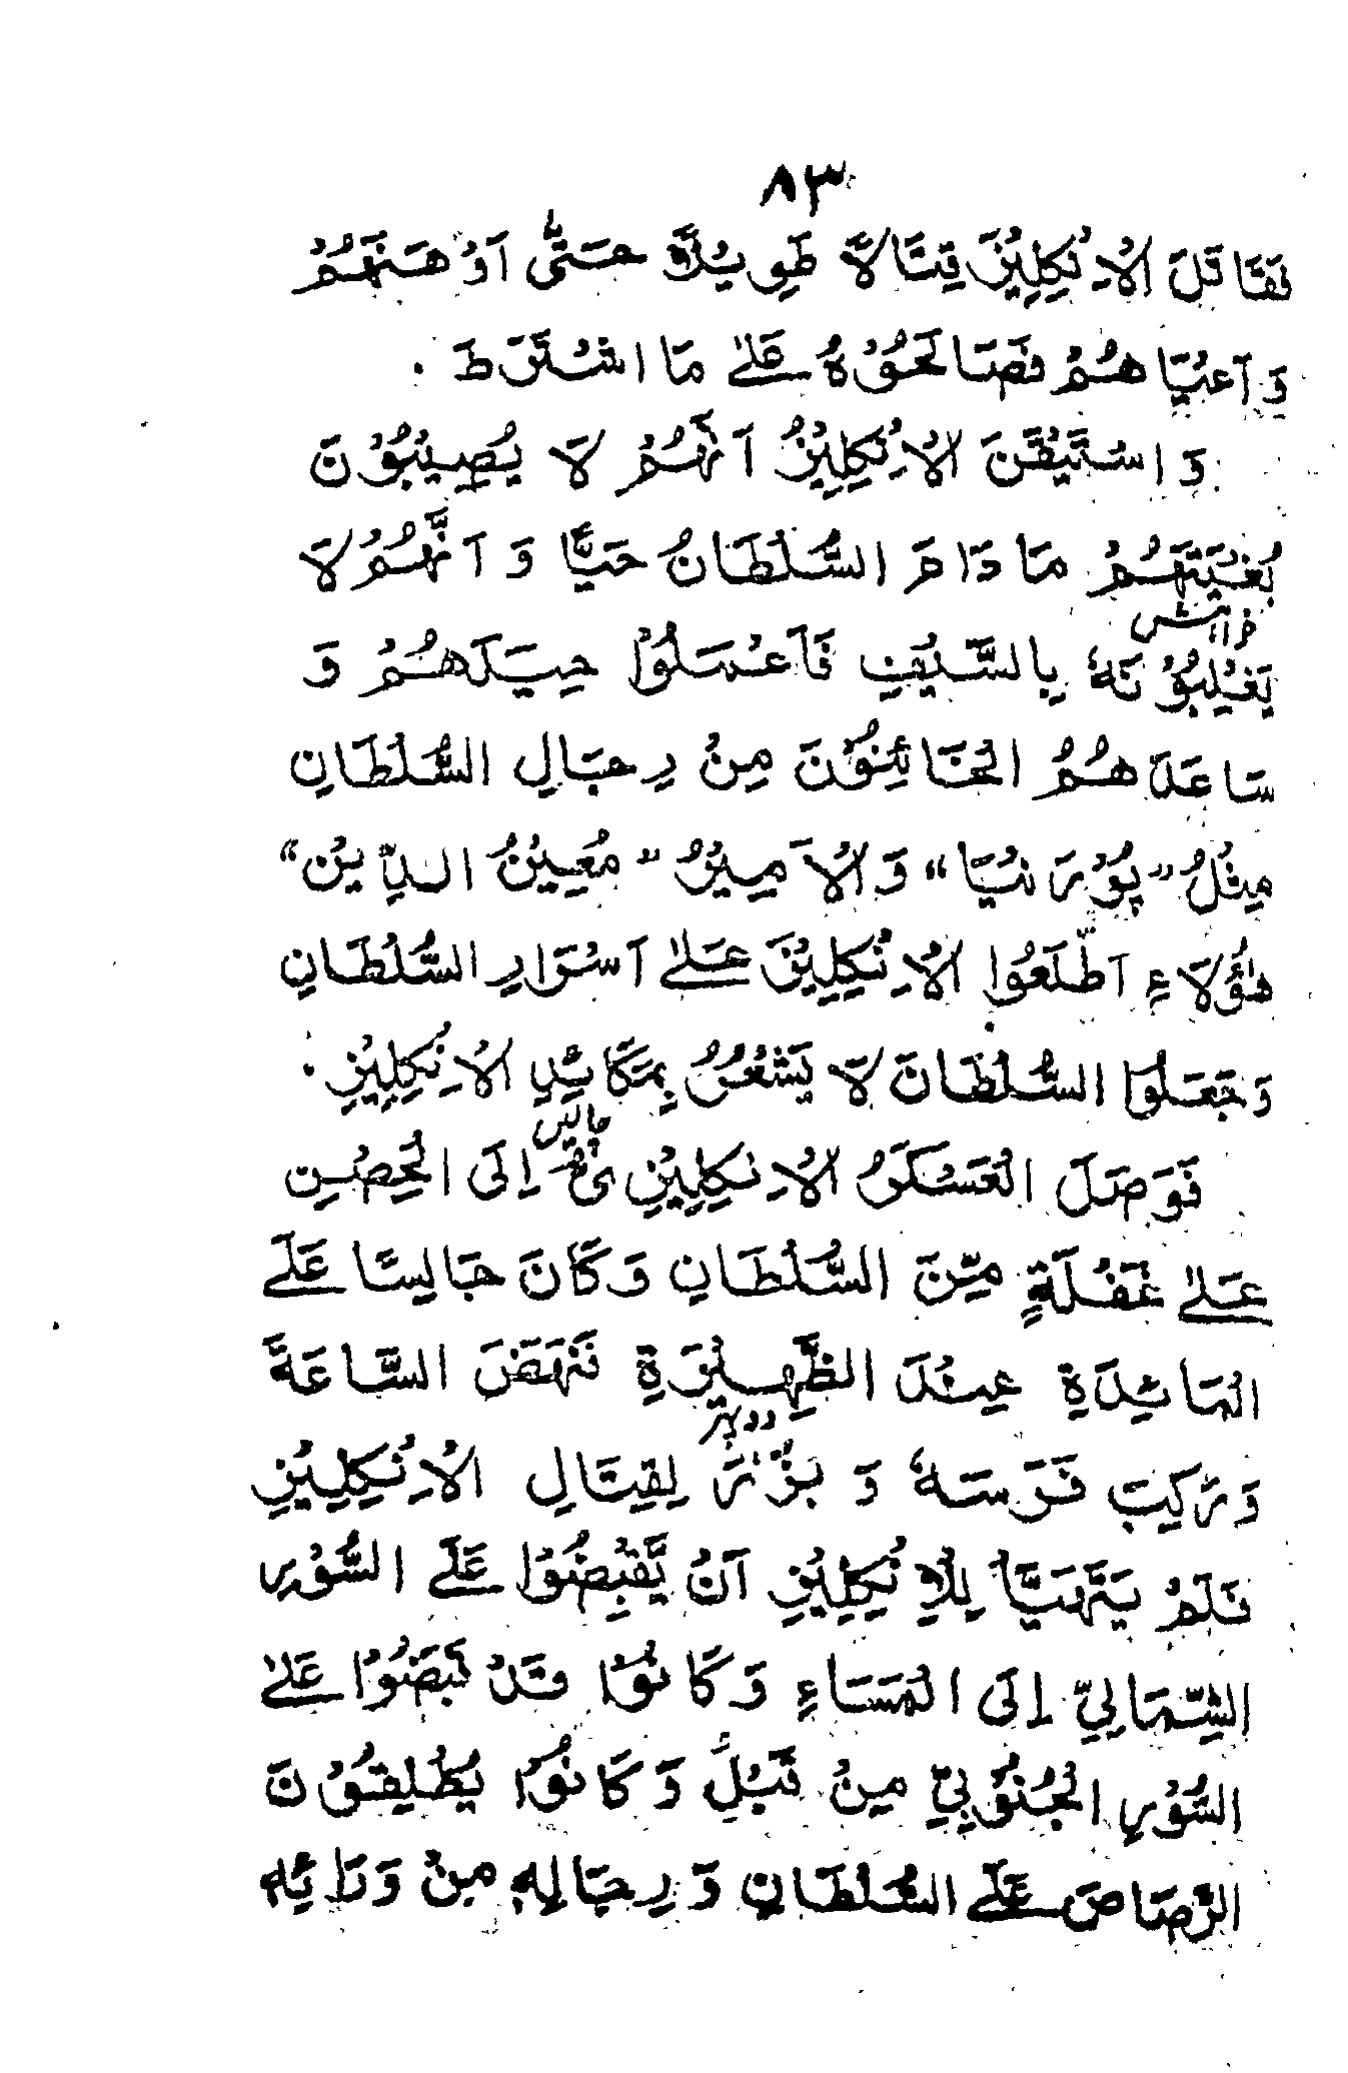 ٨٣
فَقَاتَلَ الْاِنْكِلِيْزَ قِتَالًا طَوِيْلًا حَتّٰى اَوْهَنَهُمْ
وَاَعْيَاهُمْ فَصَالَحُوْهُ عَلٰى مَا اشْتَرَطَ .
وَاسْتَيْقَنَ الْاِنْكِلِيْزُ اَنَّهُمْ لَا يُصِيْبُوْنَ
بُغْيَتَهُمْ مَا دَامَ السُّلْطَانُ حَيًّا وَ اَنَّهُمْ لَا
خواہش
يَغْلِبُوْنَهٗ بِالسَّيْفِ فَاَعْمَلُوْا حِيَلَهُمْ وَ
سَاعَدَهُمُ الْخَائِنُوْنَ مِنْ رِجَالِ السُّلْطَانِ
مِثْلُ "پُوْرَنِيَا" وَالْاَمِيْرُ "مُعِيْنُ الدِّيْنِ"
هٰؤُلَاءِ اَطْلَعُوا الْاِنْكِلِيْزَ عَلٰى اَسْرَارِ السُّلْطَانِ
وَجَعَلُوا السُّلْطَانَ لَا يَشْعُرُ بِمَكَائِدِ الْاِنْكِلِيْزِ .
چالیں
فَوَصَلَ الْعَسْكَرُ الْاِنْكِلِيْزِىُّ اِلَى الْحِصْنِ
عَلٰى غَفْلَةٍ مِّنَ السُّلْطَانِ وَكَانَ جَالِسًا عَلَى
الْمَائِدَةِ عِنْدَ الظَّهِيْرَةِ فَنَهَضَ السَّاعَةَ
دوپہر
وَرَكِبَ فَرَسَهٗ وَ بَرَزَ لِقِتَالِ الْاِنْكِلِيْزِ
فَلَمْ يَتَهَيَّأْ لِلْاِنْكِلِيْزِ اَنْ يَّقْبِضُوْا عَلَى السُّوْرِ
الشِّمَالِيِّ اِلَى الْمَسَاءِ وَكَانُوْا قَدْ قَبَضُوْا عَلٰى
السُّوْرِ الْجُنُوْبِيِّ مِنْ قَبْلُ وَكَانُوْا يُطْلِقُوْنَ
الرَّصَاصَ عَلَى السُّلْطَانِ وَرِجَالِهٖ مِنْ وَرَائِهٖ